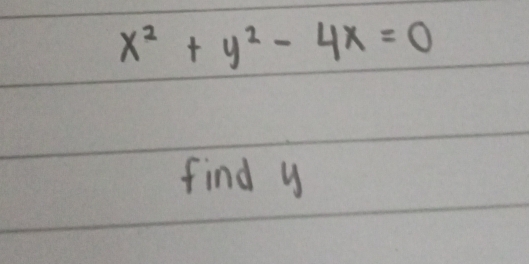 x² + y² - 4x = 0
find y